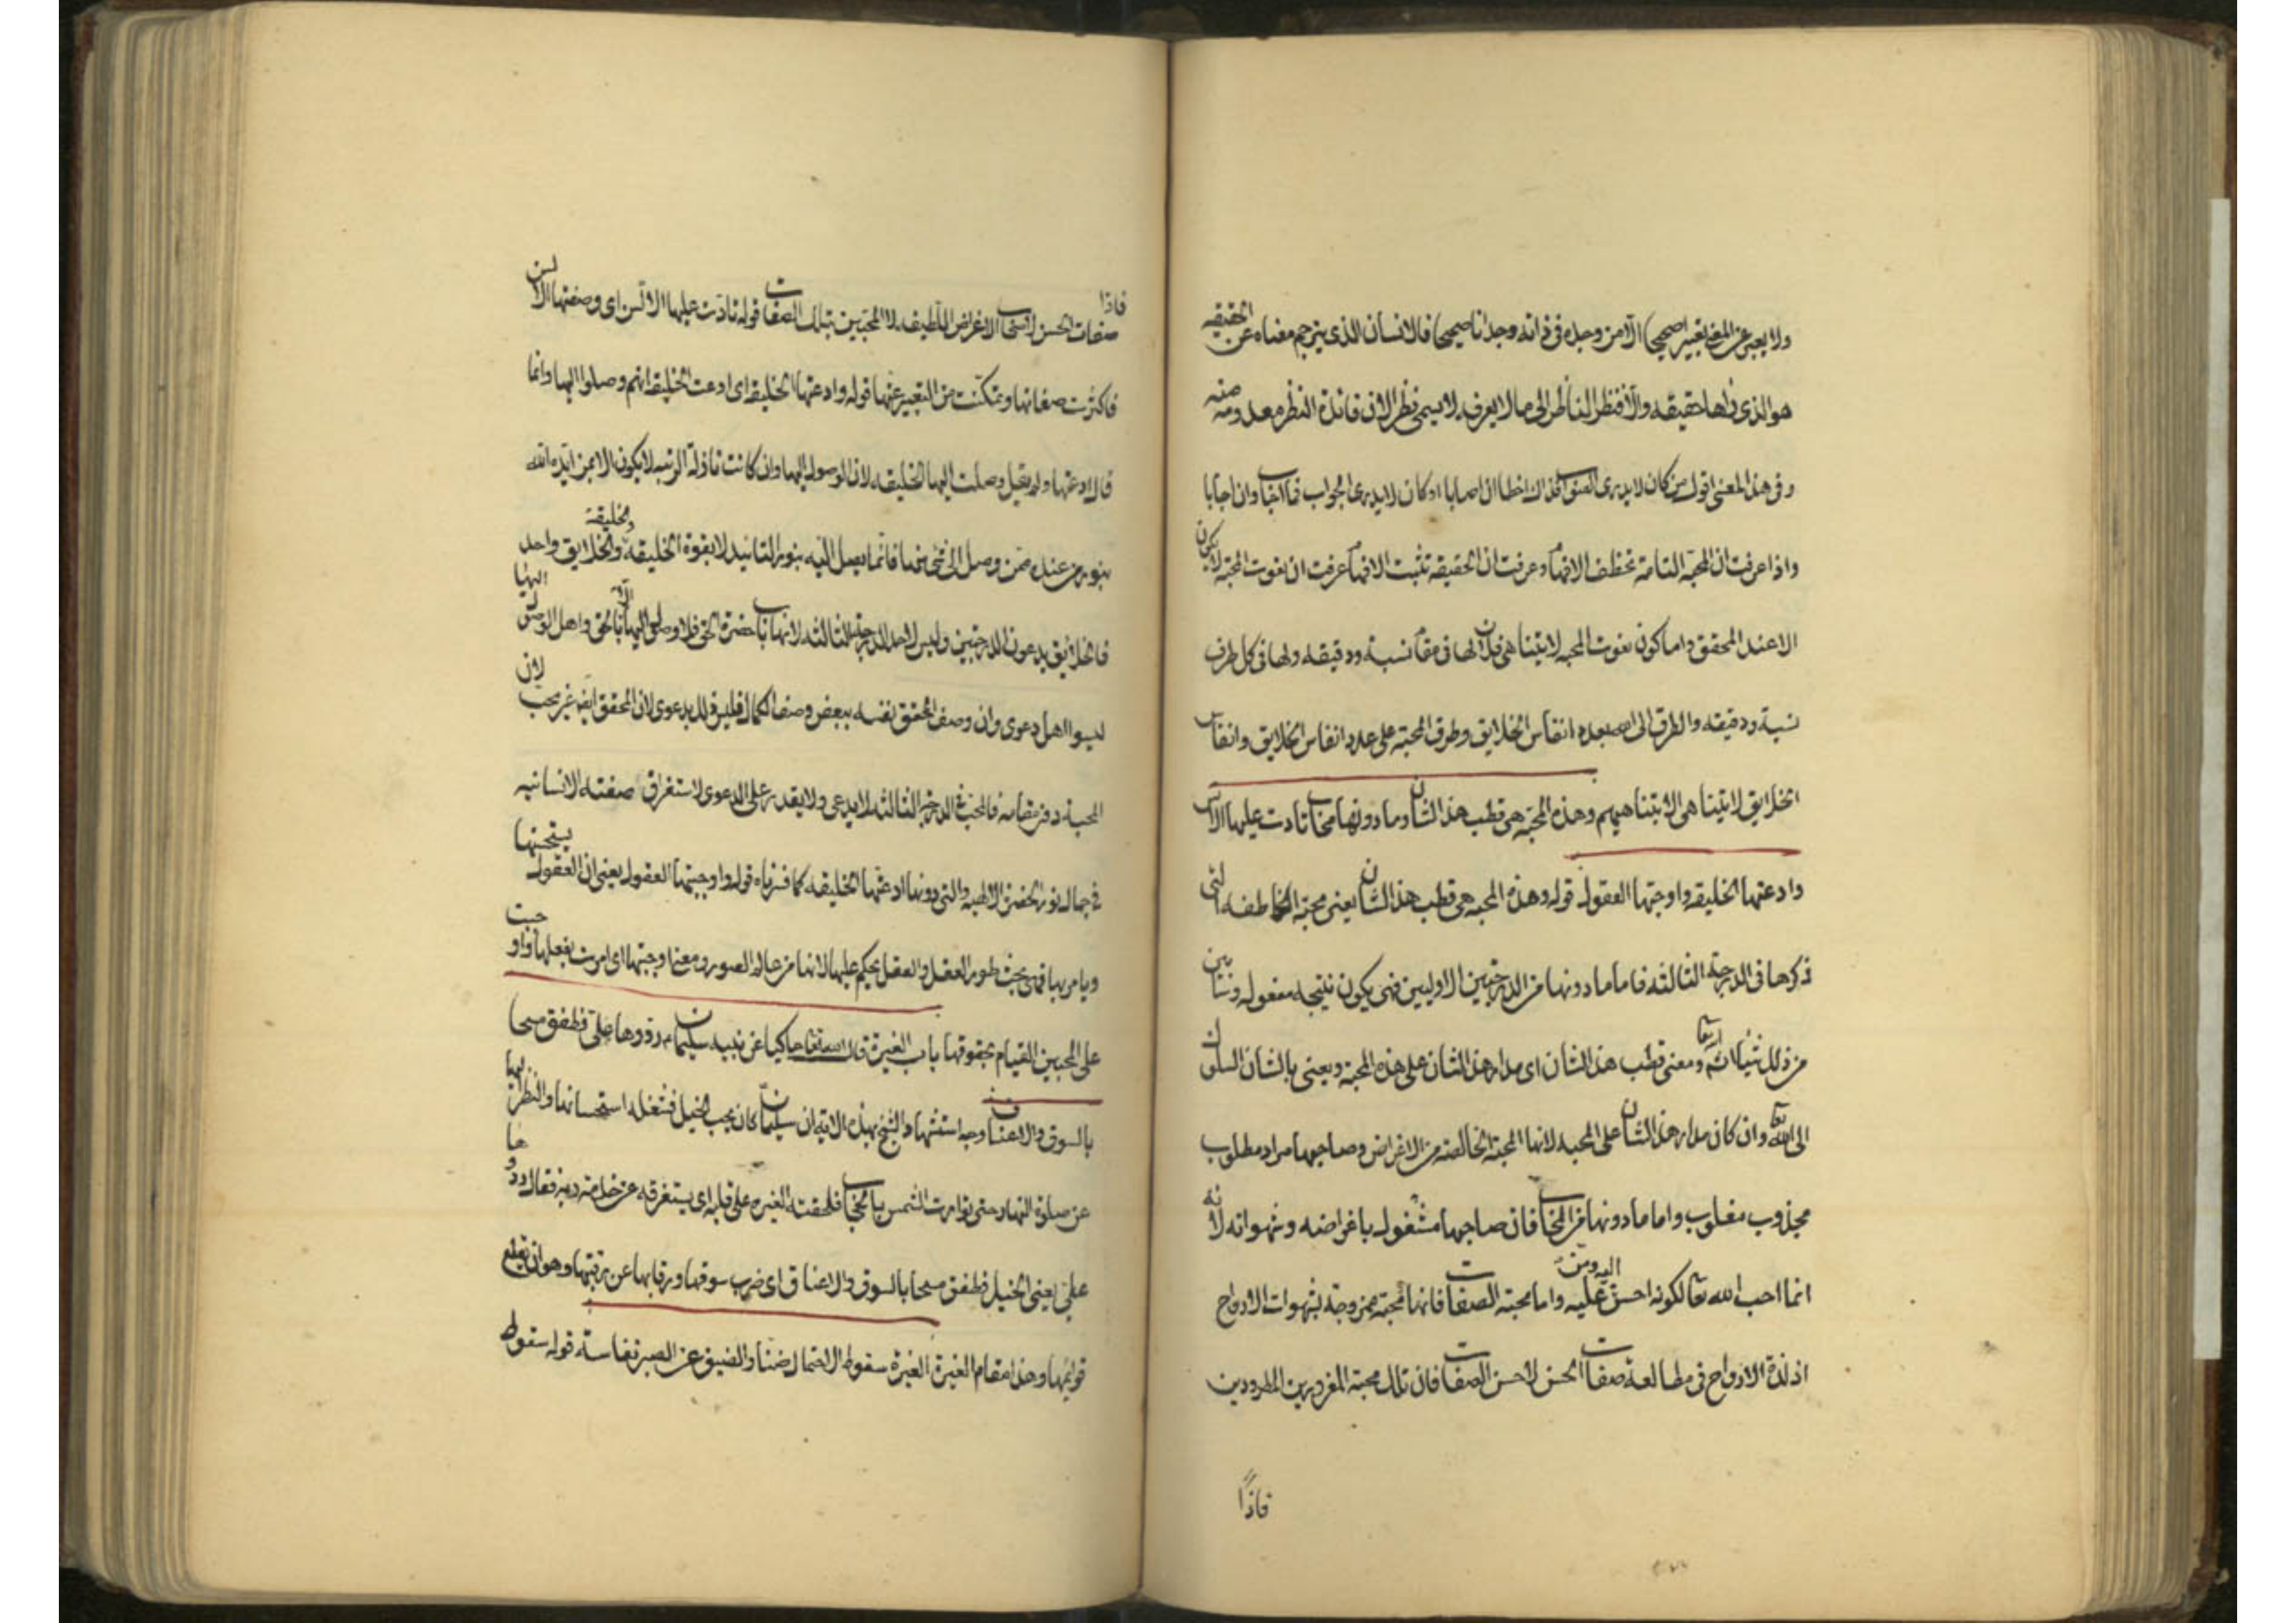 ولا يعبر عن المعنى تعبيرا صحيحا الا من وجده فى ذاته وجدانا صحيحا فالانسان الذى يترجم معناه عن الحقيقه
هو الذى ذاها حقيقه والا فنظر الناظر الى ما لا يعرفه لا يسمى نظرا لان فائدة النظر معدومه منه
وفى هذا المعنى اقول من كان لا يدرى الصواب فذاك اخطا ان اصابا اوكان لا يدرى الجواب فما اجاب وان اجابا
واذا عرفت ان المحبه التامة تخطف الافهام وعرفت ان الحقيقه تثبت الافهام عرفت ان نعوت المحبه لا يكون
الا عند المحقق واما كون نعوت المحبه لا يتناهى فلان لها فى مقام نسبة ودقيقه ولها فى كل طرف
نسبة ودقيقه والطرق الى الله بعدد انفاس الخلايق وطرق المحبة على عدد انفاس الخلايق وانفاس
الخلايق لا يتناهى لا بتناهيهم وهذه المحبة هى قطب هذا الشان وما دونها محاب نادت عليها الالسن
وادعتها الخليقه واوجبتها العقول قوله وهذه المحبه هى قطب هذا الشان يعنى محبة الخاطفه التى
ذكرها فى الدرجة الثالثه فاما ما دونها من الدرجتين الاوليين فهى يكون نتيجه مفعوله وسنبين
من ذلك شيئا ان شاء الله تعا ومعنى قطب هذا الشان اى مدار هذا الشان على هذه المحبة ويعنى بالشان السلوك
الى الله تعا وان كان مدار هذا الشان على المحبه لانها المحبة الخالصه من الاغراض وصاحبها مراد مطلوب
مجذوب مغلوب واما ما دونها من المحاب فان صاحبها مشغول باغراضه وشهواته لانه
انما احب الله تعا لكونه احسن اليه ومن عليه واما محبة الصفات فانها محبة ممزوجة بشهوات الارواح
اذ لذة الارواح فى مطالعة صفات الحسن لاحسن الصفات فان تلك محبة المغرورين المطرودين
فاذا
فاذا
صفات الحسن لاصحاب الاغراض اللطيفه لا المحبين بتلك الصفات قوله نادت عليها الالسن اى وصفتها الالسن
فاكثرت صفاتها وتمكنت من التعبير عنها قوله وادعتها الخليقه اى ادعت الخليقه انهم وصلوا اليها وانما
قال ادعتها ولم يقل وصلت اليها الخليقه لان الوصول اليها وان كانت نازلة الرتبه لا يكون الا بمن ايده الله
بنور من عنده فمن وصل الى شئ منها فانما يصل اليه بنور التاييد لا بقوة الخليقه والخليقة والخلايق واحد
فالخلايق يدعون الدرجتين وليس لاحد الدرجة الثالثه لانها باب حضرة الحق فلا وصول اليها الا بالحق واهل الوصول اليها
ليسوا اهل دعوى وان وصف المحقق نفسه ببعض وصف الكمال فليس ذلك بدعوى لان المحقق ايضا غير محب لان
المحبة دون مقامه فالمحب فى الدرجة الثالثه لا يدعى ولا يقدر على الدعوى لاستغراق صفته الانسانيه
فى جمال نور الحضرة الالهيه والتى دونها ادعتها الخليقه كما قررناه قوله واوجبتها العقول يعنى ان العقول يستحسنها
ويامر بها فهى تحت طور العقل والعقل يحكم عليها لانها من عالم الصور ومعنى اوجبتها اى امرت بفعلها واوجبت
على المحبين القيام بحقوقها باب الغيرة قال الله تعا حاكيا عن نبيه سليمان ردوها على فطفق مسحا
بالسوق والاعناق وجه استشهاد الشيخ بهذه الاية ان سليمان كان يحب الخيل فشغله استحسانها والنظر اليها
عن صلوة النهار حتى توارت الشمس بالحجاب فلحقته الغيره على قلبه اى يستغرقه عن خدامة ربه فقال ردوها
على يعنى الخيل فطفق مسحا بالسوق والاعناق اى ضرب سوقها ورقابها عن رقبتها وهو ان تقطع
قوائمها وهذا مقام الغيرة الغيرة سقوط الاحتمال ضنا والضيق عن الصبر نفاسة قوله سقوط